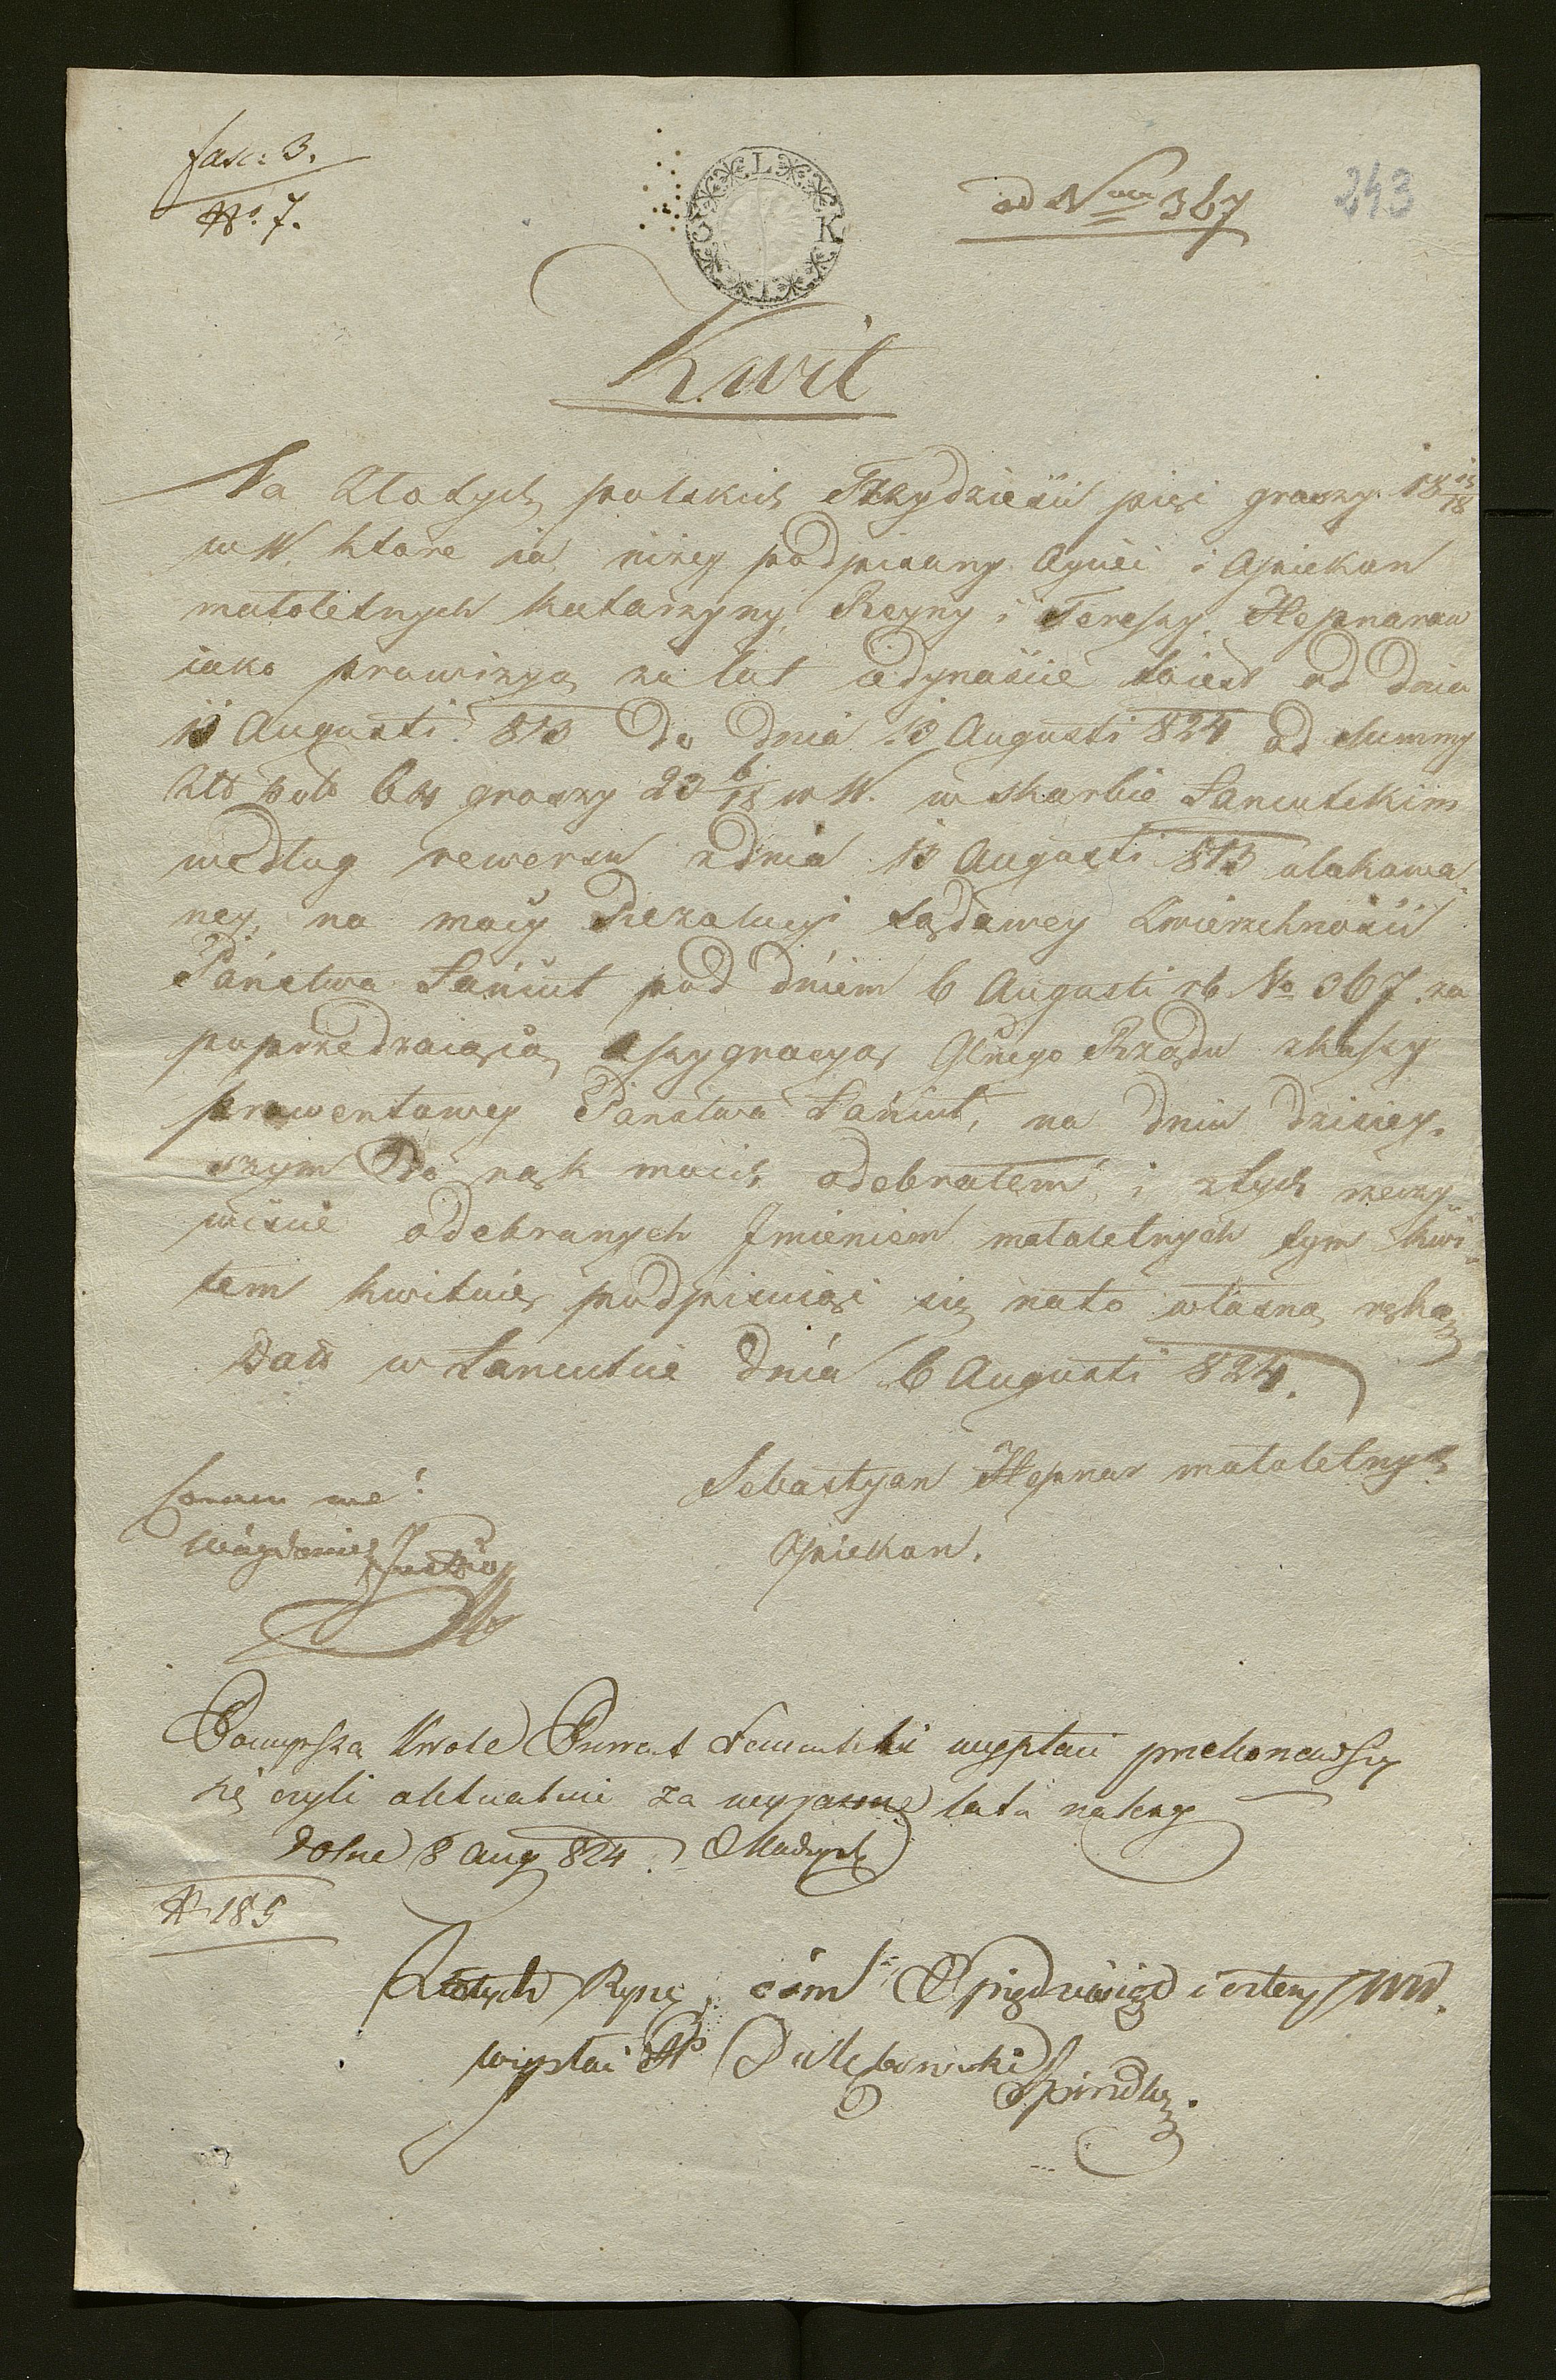 fasc: 3.
No. 7.
ad Num 367
243
L K I C
Kwit
Na Złotych polskich Trzydzieści pięć groszy 13 15/18
w W. które ia niżey podpisany Oyciec i Opiekun
małoletnych Katarzyny, Reyny i Teressy Hepnarow
iako prowizyą za lat odynaście to iest od dnia
13 Augusti 813 do dnia 13 Augusti 824 od summy
Złt pols 64 groszy 23 6/18 w W. w skarbie Łancutskim
według rewersu z dnia 13 Augusti 813 ulokowa-
ney, na mocy Rezolucyi sądowey Zwierzchności
Państwa Łańcut pod dniem 6 Augusti rb No 367. za
poprzedzaiącą assygnacyą Głnego Rządu z kassy
prowentowey Państwa Łańcut, na dniu dzisiey-
szym do rąk moich odebrałem i z tych rzeczy-
wiście odebranych Jmieniem małoletnych tym kwi-
tem kwituię podpisuiąc się na to własną ręką
Datt w Łancucie dnia 6 Augusti 824.
Sebastyan Hepnar małoletnych
Opiekun.
Coram me:
Justic
Powyższą kwotę Prowent Łancutski wypłaci przekonawszy
się czyli aktualnie za wyrażone lata należy
Dolne 8 Aug 824.
No 185
Złotych Ryńs. ośm Xr pięędziesiąt i cztery WW.
wypłaci